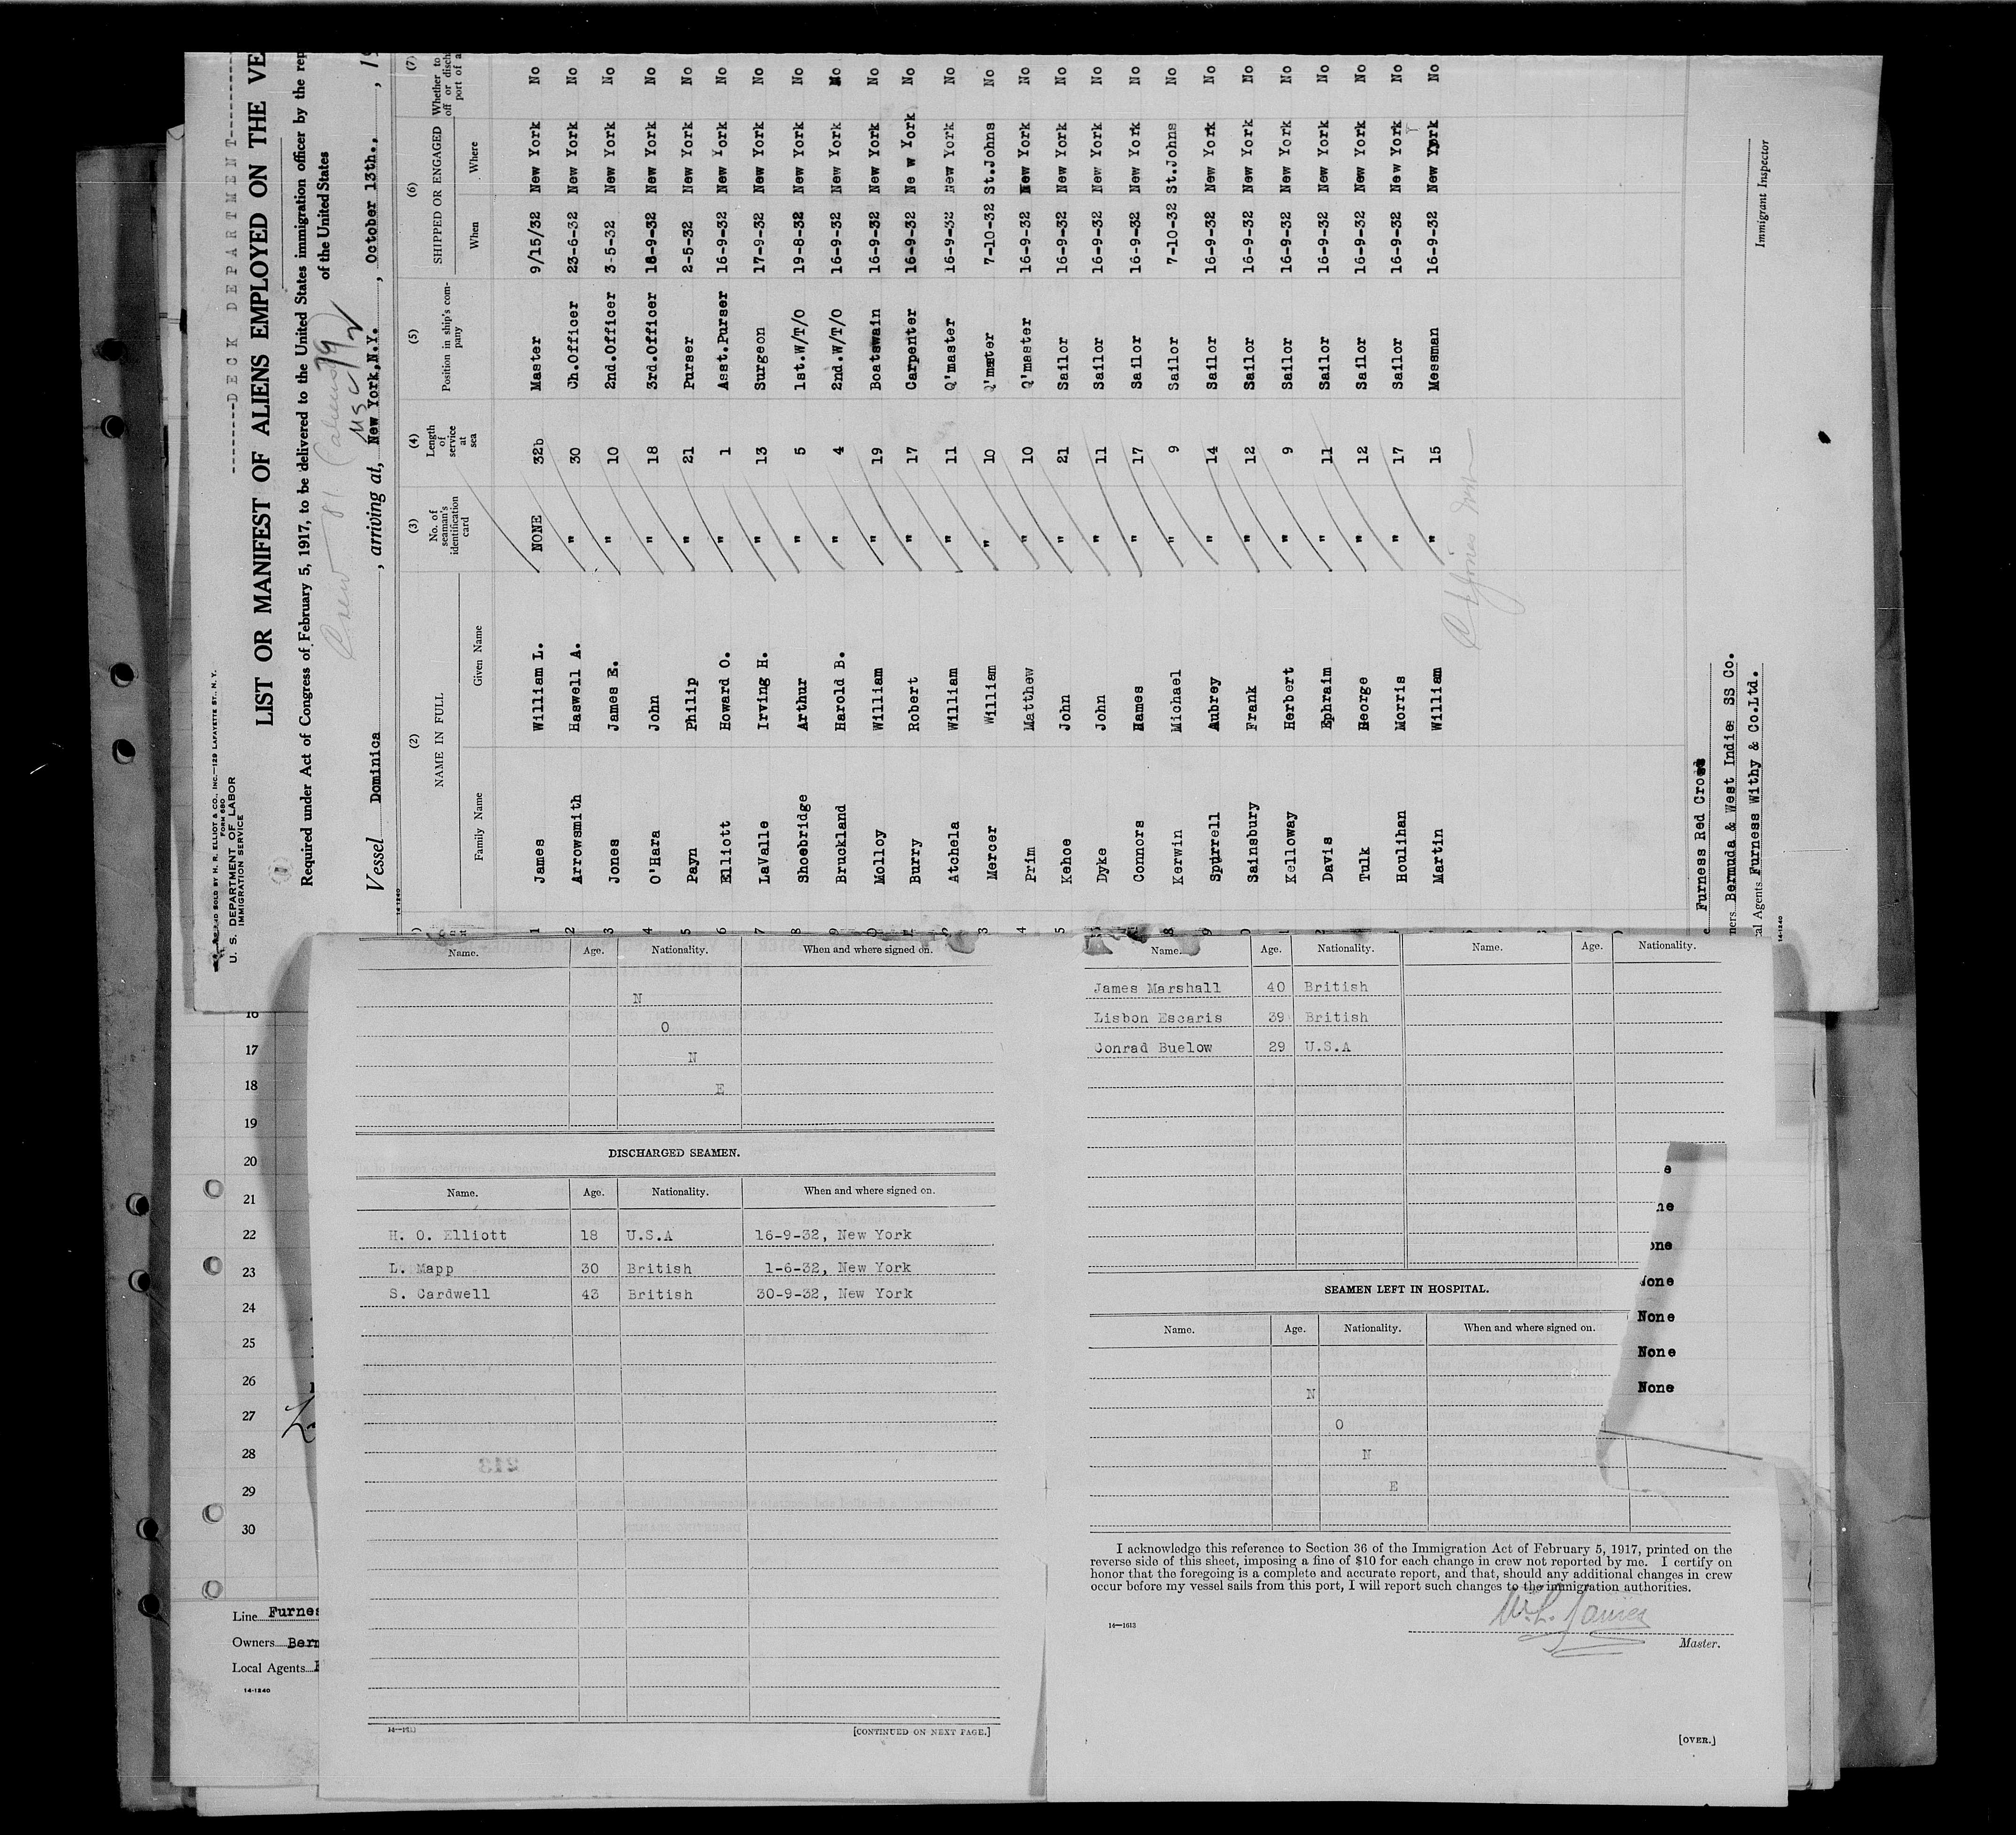 AND SOLD BY H. R. ELLIOT & CO., INC.—129 LAFAYETTE ST., N. Y.
FORM 680
U. S. DEPARTMENT OF LABOR
IMMIGRATION SERVICE
--------DECK DEPARTMENT--------
LIST OR MANIFEST OF ALIENS EMPLOYED ON THE VE
Required under Act of Congress of February 5, 1917, to be delivered to the United States immigration officer by the rep
of the United States
Crew 81
USC 79
Vessel Dominica, arriving at, New York, N.Y., October 13th., 19
14-1240
(2) (3) (4) (5) (6) (7)
NAME IN FULL No. of seaman's identification card Length of service at sea Position in ship's company SHIPPED OR ENGAGED Whether to off or disch port of a
Family Name Given Name When Where
1 James William L. NONE 32b Master 9/15/32 New York No
2 Arrowsmith Haswell A. " 30 Ch.Officer 23-6-32 New York No
3 Jones James E. " 10 2nd.Officer 3-5-32 New York No
4 O'Hara John " 18 3rd.Officer 18-9-32 New York No
5 Payn Philip " 21 Purser 2-5-32 New York No
6 Elliott Howard O. " 1 Asst.Purser 16-9-32 New York No
7 LaValle Irving H. " 13 Surgeon 17-9-32 New York No
8 Shoebridge Arthur " 5 1st.W/T/O 19-8-32 New York No
9 Bruckland Harold B. " 4 2nd.W/T/O 16-9-32 New York No
Molloy William " 19 Boatswain 16-9-32 New York No
Burry Robert " 17 Carpenter 16-9-32 Ne w York No
Atchela William " 11 Q'master 16-9-32 New York No
3 Mercer William " 10 Q'master 7-10-32 St.Johns No
4 Prim Matthew " 10 Q'master 16-9-32 New York No
5 Kehoe John " 21 Sailor 16-9-32 New York No
Dyke John " 11 Sailor 16-9-32 New York No
Connors Hames " 17 Sailor 16-9-32 New York No
8 Kerwin Michael " 9 Sailor 7-10-32 St.Johns No
9 Spurrell Aubrey " 14 Sailor 16-9-32 New York No
Sainsbury Frank " 12 Sailor 16-9-32 New York No
Kelloway Herbert " 9 Sailor 16-9-32 New York No
Davis Ephraim " 11 Sailor 16-9-32 New York No
Tulk George " 12 Sailor 16-9-32 New York No
Houlihan Morris " 17 Sailor 16-9-32 New York No
Martin William " 15 Messman 16-9-32 New York No
Furness Red Cross
ners Bermuda & West Indies SS Co.
al Agents Furness Withy & Co.Ltd.
14-1240
Immigrant Inspector
Name. Age. Nationality. When and where signed on.
N
O
N
E
DISCHARGED SEAMEN.
Name. Age. Nationality. When and where signed on.
H. O. Elliott 18 U.S.A 16-9-32, New York
L. Mapp 30 British 1-6-32, New York
S. Cardwell 43 British 30-9-32, New York
213
[CONTINUED ON NEXT PAGE.]
Name. Age. Nationality. Name. Age. Nationality.
James Marshall 40 British
Lisbon Escaris 39 British
Conrad Buelow 29 U.S.A
SEAMEN LEFT IN HOSPITAL.
Name. Age. Nationality. When and where signed on.
N
O
N
E
I acknowledge this reference to Section 36 of the Immigration Act of February 5, 1917, printed on the
reverse side of this sheet, imposing a fine of $10 for each change in crew not reported by me. I certify on
honor that the foregoing is a complete and accurate report, and that, should any additional changes in crew
occur before my vessel sails from this port, I will report such changes to the immigration authorities.
W.L. James
14—1613
Master.
[OVER.]
16
17
18
19
20
21
22
23
24
25
26
27
28
29
30
Line Furnes
Owners Berm
Local Agents F
14-1240
e
ne
one
None
None
None
None